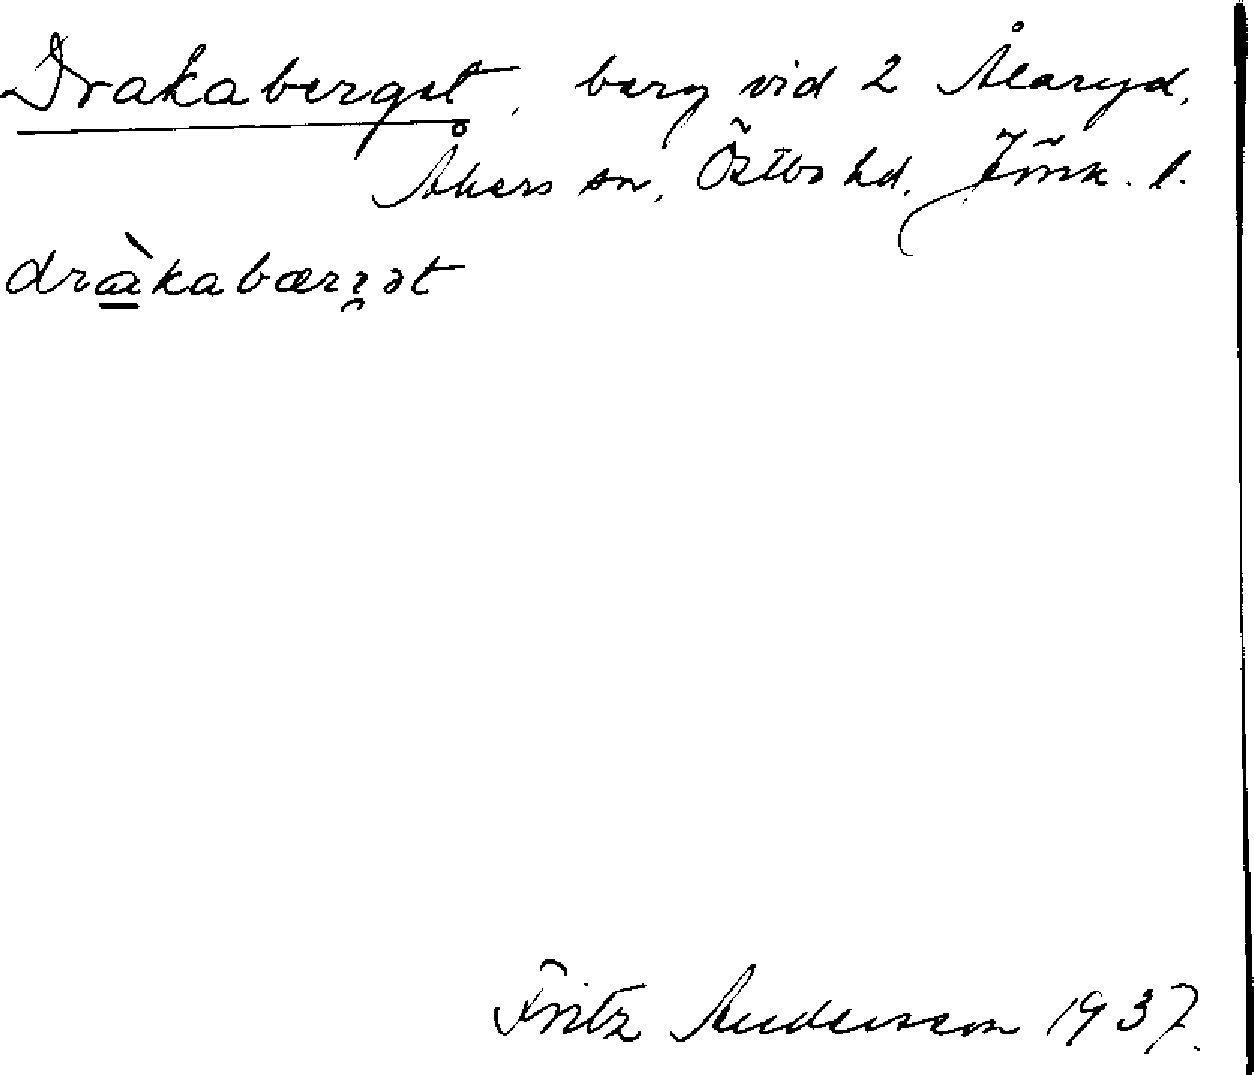 Drakaberget, berg vid 2 Ålaryd,
Åkers sn, Östbo hd. Jönk. l.
dràkabærʒət
Fritz Andersson 1937.